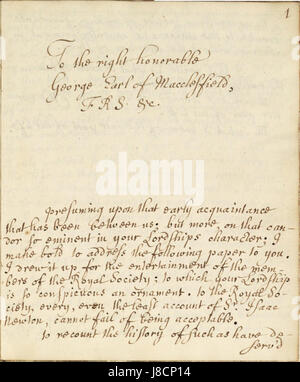 1
To the right honorable
George Earl of Macclesfield,
F.R.S. &c.
presuming upon that early acquaintance
that has been between us: but more, on that can-
dor so eminent in your Lordships character: I
make bold to address the following paper to you.
I drew it up for the entertainment of the mem-
bers of the Royal Society: to which your Lordship
is so conspicuous an ornament. to the Royal So-
ciety, every, even the least account of Sr. Isaac
Newton, cannot fail of being acceptable.
to recount the history of such as have de-
serv'd
alamy
Image ID: J8CP14
www.alamy.com